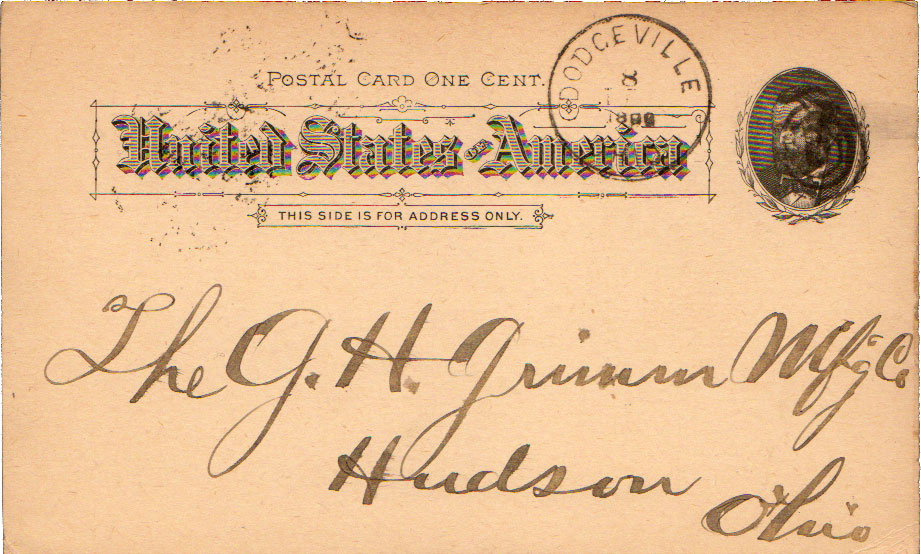 POSTAL CARD ONE CENT.
DODGEVILLE
United States OF America
THIS SIDE IS FOR ADDRESS ONLY.
The G. H. Grimm Mfg Co
Hudson
Ohio